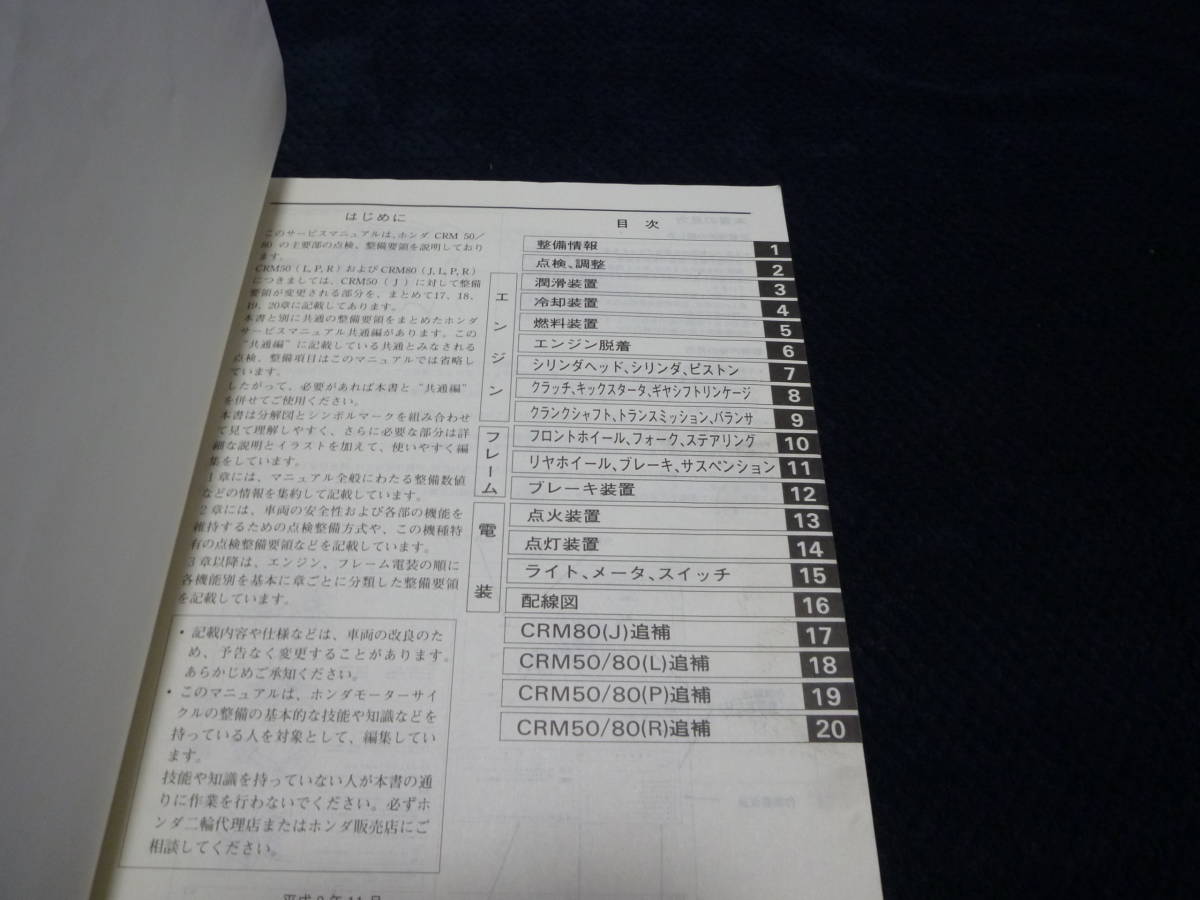 はじめに
このサービスマニュアルは、ホンダ CRM 50/
80 の主要部の点検、整備要領を説明しており
ます。
CRM50（L, P, R）およびCRM80（J, L, P, R）
につきましては、CRM50（J）に対して整備
要領が変更される部分を、まとめて17、18、
19、20章に記載してあります。
本書と別に共通の整備要領をまとめたホンダ
サービスマニュアル共通編があります。この
“共通編”に記載している共通とみなされる
点検、整備項目はこのマニュアルでは省略し
ています。
したがって、必要があれば本書と“共通編”
を併せてご使用ください。
本書は分解図とシンボルマークを組み合わせ
て見て理解しやすく、さらに必要な部分は詳
細な説明とイラストを加えて、使いやすく編
集をしています。
1章には、マニュアル全般にわたる整備数値
などの情報を集約して記載しています。
2章には、車両の安全性および各部の機能を
維持するための点検整備方式や、この機種特
有の点検整備要領などを記載しています。
3章以降は、エンジン、フレーム電装の順に
各機能別を基本に章ごとに分類した整備要領
を記載しています。
・記載内容や仕様などは、車両の改良のた
め、予告なく変更することがあります。
あらかじめご承知ください。
・このマニュアルは、ホンダモーターサイ
クルの整備の基本的な技能や知識などを
持っている人を対象として、編集してい
ます。
技能や知識を持っていない人が本書の通
りに作業を行わないでください。必ずホ
ンダ二輪代理店またはホンダ販売店にご
相談してください。
目次
整備情報 1
点検、調整 2
エンジン
潤滑装置 3
冷却装置 4
燃料装置 5
エンジン脱着 6
シリンダヘッド、シリンダ、ピストン 7
クラッチ、キックスタータ、ギヤシフトリンケージ 8
クランクシャフト、トランスミッション、バランサ 9
フレーム
フロントホイール、フォーク、ステアリング 10
リヤホイール、ブレーキ、サスペンション 11
ブレーキ装置 12
電装
点火装置 13
点灯装置 14
ライト、メータ、スイッチ 15
配線図 16
CRM80(J)追補 17
CRM50/80(L)追補 18
CRM50/80(P)追補 19
CRM50/80(R)追補 20